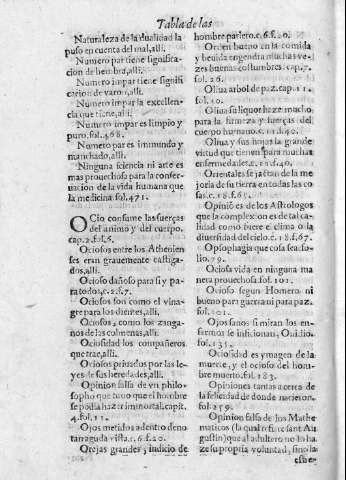 Tabla de las
Naturaleza de la dualidad la
puso en cuenta del mal, alli.
Numero par tiene significa-
cion de hembra, alli.
Numero impar tiene signifi
cacion de varon, alli.
Numero impar la excellen-
cia que tiene, alli.
Numero impar es limpio y
puro, fol. 468.
Numero par es immundo y
manchado, alli.
Ninguna sciencia ni arte es
mas prouechosa para la conser-
uacion de la vida humana que
la medicina fol. 471.
OCio consume las fuerças
del animo y del cuerpo,
cap. 2. fol. 6.
Ociosos entre los Athenien
ses eran grauemente castiga-
dos, alli.
Ocioso dañoso para si y pa-
ra todos, c. 2. f. 7.
Ociosos son como el vina-
gre para los dientes, alli.
Ociosos, como los zanga-
nos de las colmenas, alli.
Ociosidad los compañeros
que trae, alli.
Ociosos priuados por las le-
yes de sus heredades, alli.
Opinion falsa de vn philo-
sopho que tuuo que el hombre
se podia hazer immortal, capit.
4. fol. 11.
Ojos metidos adentro deno
tan aguda vista. c. 6. f. 20.
Orejas grandes, indicio de
hombre parlero. c. 6. f. 20.
Orden bueno en la comida
y beuida engendra muchas ve-
zes buenas costumbres. cap. 7.
fol. 26.
Oliua arbol de paz. cap. 11.
fol. 40.
Oliua su liquor haze mucho
para la firmeza y fuerças del
cuerpo humano. c. 11. f. 40.
Oliua y sus hojas la grande
virtud que tienen para muchas
enfermedades. c. 11. f. 40.
Orientales se jactan de la me
joria de su tierra en todas las co-
sas. c. 18. f. 65.
Opinió es de los Astrologos
que la complexion es de tal ca-
lidad como fuere el clima o la
diuersidad del cielo. c. 18. f. 67.
Opsophagia que cosa sea. fo-
lio. 79.
Ociosa vida en ninguna ma
nera prouechosa. fol. 101.
Ocioso segun Homero ni
bueno para guerra ni para paz.
fol. 101.
Ojos sanos si miran los en-
fermos se inficionan, Ouidio.
fol. 131.
Ociosidad es ymagen de la
muerte, y el ocioso del hom-
bre muerto. fol. 183.
Opiniones tantas acerca de
la felicidad de donde nacieron.
fol. 259.
Opinion falsa de los Mathe
maticos (la qual refiere sant Au
gustin) que al adultero no la ha
ze su propria voluntad, sino la